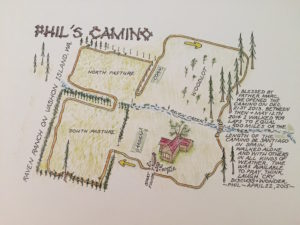 PHIL'S CAMINO
RAVEN RANCH ON VASHON ISLAND, WA
NORTH PASTURE
WOODLOT
SOUTH PASTURE
BLESSED BY
FATHER MARC,
HE OPENED THE
CAMINO ON DEC.
21ST 2013. BETWEEN
THEN AND
2014 I WALKED 909
LAPS TO EQUAL
500 MILES OR THE
LENGTH OF THE
CAMINO DE SANTIAGO
IN SPAIN. I
WALKED ALONE
AND WITH OTHERS
IN ALL KINDS OF
WEATHER. TIME
WAS AVAILABLE
TO PRAY, THINK,
LAUGH, CRY,
DISCUSS, WONDER.
-PHIL- APRIL 22, 2015-